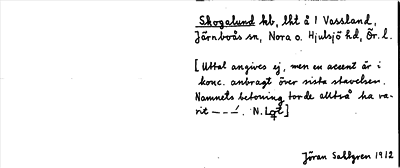 Skogalund hb, lht å 1 Vassland,
Järnboås sn, Nora o. Hjulsjö hd, Ör. l.
[Uttal angives ej, men en accent är i
konc. anbragt över sista stavelsen.
Namnets betoning torde alltså ha va-
rit – – –́. N. Lqt]
Jöran Sahlgren 1912